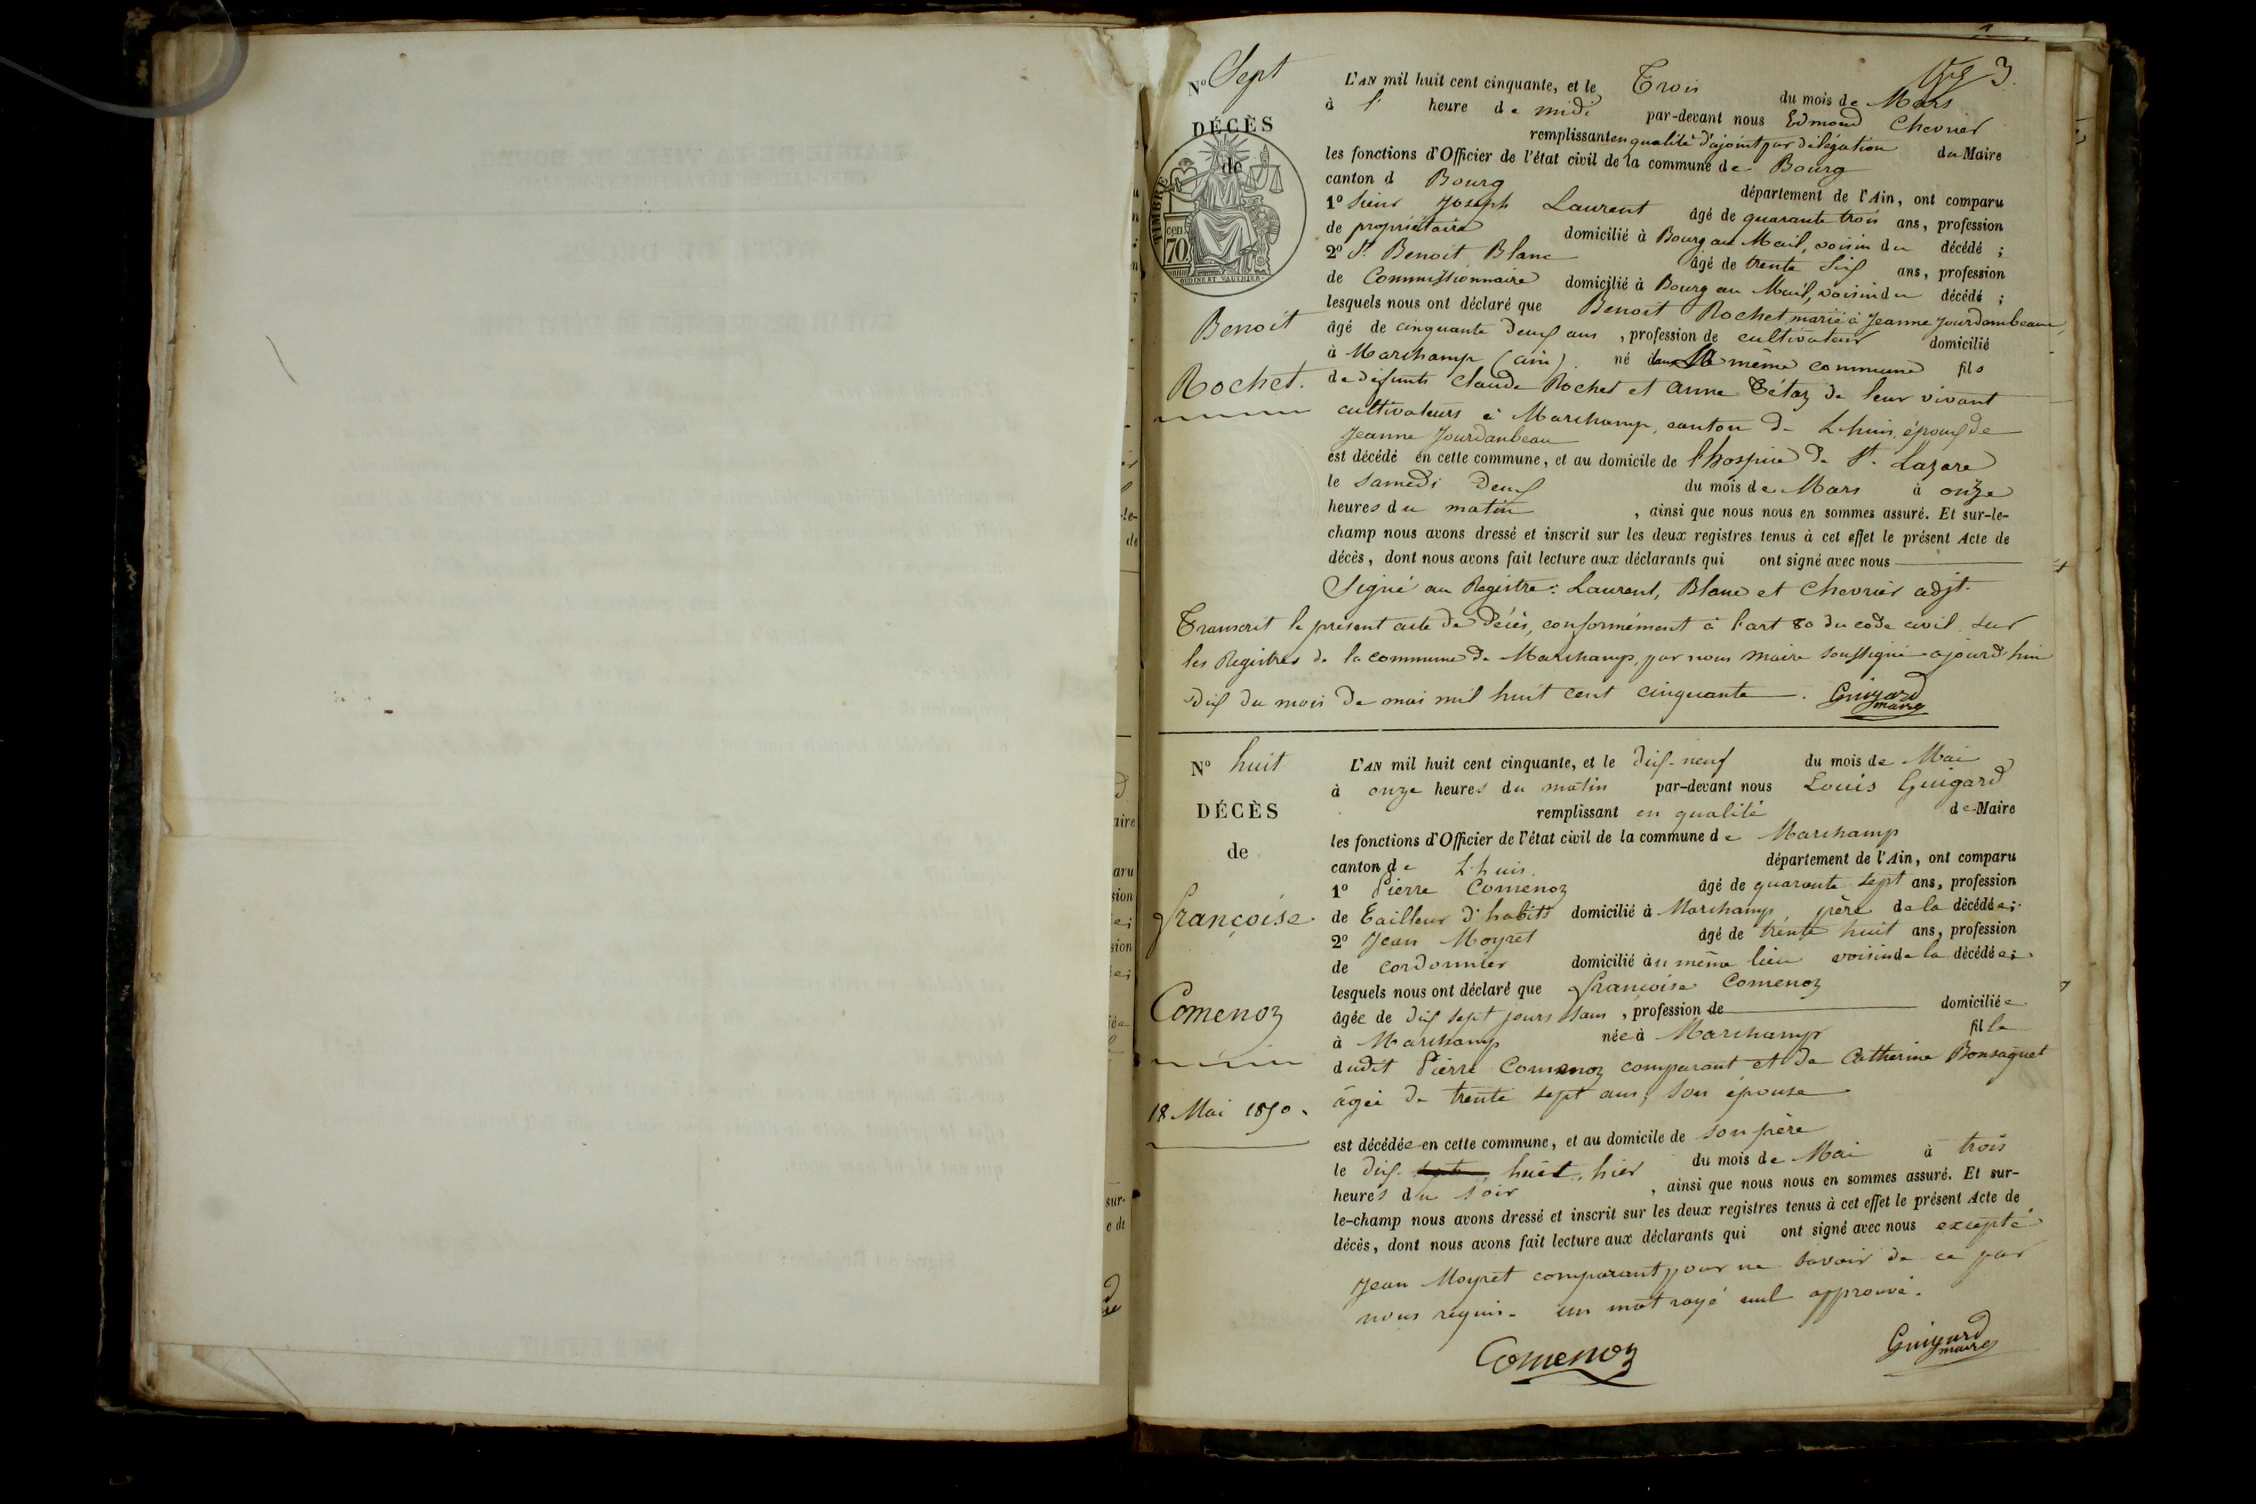 3.
N° Sept
DÉCÈS
de
TIMBRE
cen
70
OUDINET VAUTHIER
Benoit
Rochet.
L'AN mil huit cent cinquante, et le Trois du mois de Mars
à l' heure de midi par-devant nous Edmond Chevrier
remplissant en qualité d'ajoint par délégation du Maire
les fonctions d'Officier de l'état civil de la commune de Bourg
canton d Bourg département de l'Ain, ont comparu
1° Sieur Joseph Laurent âgé de quarante trois ans, profession
de propriétaire domicilié à Bourg au Mail, voisin du décédé ;
2° Sr. Benoit Blanc âgé de trente Six ans, profession
de Commissionnaire domicilié à Bourg au Mail, voisin du décédé ;
lesquels nous ont déclaré que Benoit Rochet marié à Jeanne Jourdanbeau,
âgé de cinquante Deux ans , profession de cultivateur domicilié
à Marchamp (ain) né dans la même commune fils
de défunts Claude Rochet et Anne Tétaz de leur vivant
cultivateurs à Marchamp, canton de Lhuis, époux de
Jeanne Jourdanbeau
est décédé en cette commune, et au domicile de l'hospice de St. Lazare
le Samedi Deux du mois de Mars à onze
heures du matin , ainsi que nous nous en sommes assuré. Et sur-le-
champ nous avons dressé et inscrit sur les deux registres tenus à cet effet le présent Acte de
décès, dont nous avons fait lecture aux déclarants qui ont signé avec nous
Signé au Registre : Laurent, Blanc et Chevrier adjt.
Transcrit le présent acte de Décès, conformément à l'art 80 du code civil sur
les Registres de la commune de Marchamp, par nous Maire soussigné ajourd'hui
dix du mois de mai mil huit cent cinquante. Guigard
maire
N° huit
DÉCÈS
de
Françoise
Comenoz
18 Mai 1850.
L'AN mil huit cent cinquante, et le dix-neuf du mois de Mai
à onze heures du matin par-devant nous Louis Guigard
remplissant en qualité de Maire
les fonctions d'Officier de l'état civil de la commune de Marchamp
canton de Lhuis. département de l'Ain, ont comparu
1° Pierre Comenoz âgé de quarante sept ans, profession
de Tailleur d'habits domicilié à Marchamp père de la décédée;
2° Jean Moyret âgé de trente huit ans, profession
de cordonnier domicilié au même lieu voisin de la décédée;
lesquels nous ont déclaré que Françoise Comenoz
âgée de dix sept jours ans , profession de domiciliée
à Marchamp née à Marchamp fille
dudit Pierre Comenoz comparant et de Catherine Bonsaquet
âgée de trente sept ans, son épouse
est décédée en cette commune, et au domicile de son père
le dix-sept huit, hier du mois de Mai à trois
heures du soir , ainsi que nous nous en sommes assuré. Et sur-
le-champ nous avons dressé et inscrit sur les deux registres tenus à cet effet le présent Acte de
décès, dont nous avons fait lecture aux déclarants qui ont signé avec nous excepté
Jean Moyret comparant pour ne savoir de ce par
nous requis. un mot rayé nul approuvé.
Comenoz Guigard
maire